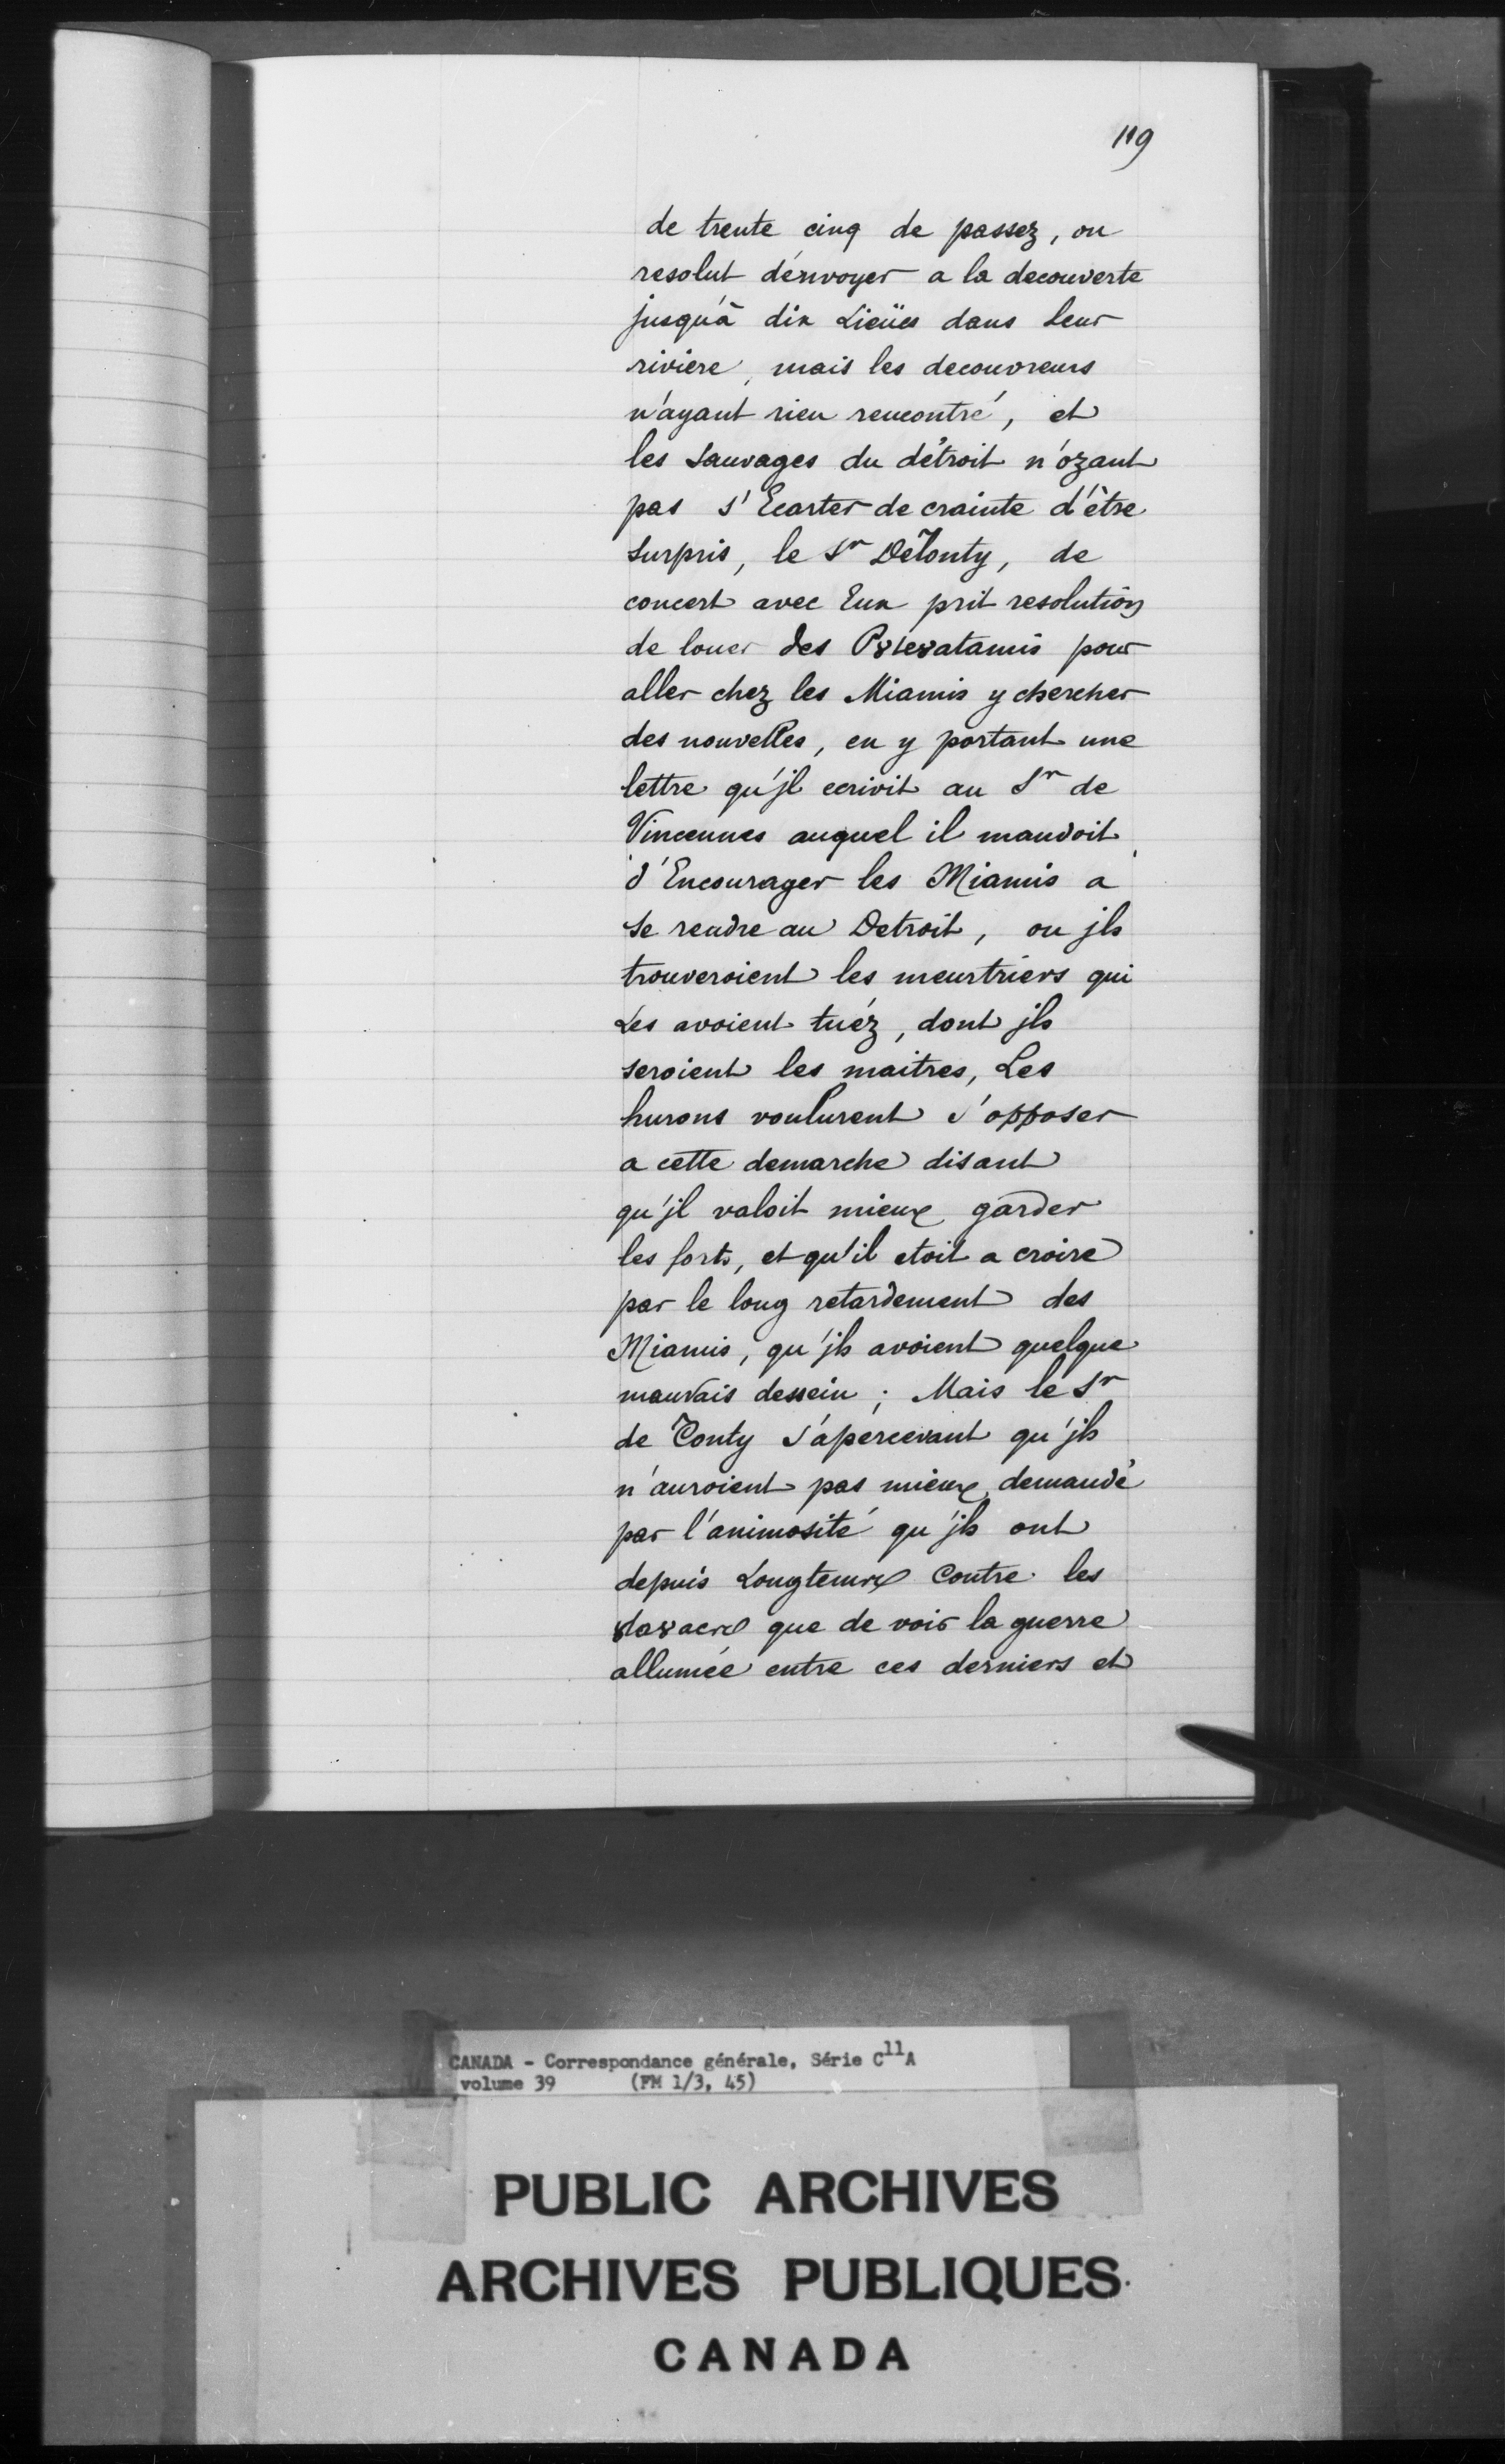 119
de trente cinq de passez, on
resolut d'envoyer a la decouverte
jusqu'à dix Lieües dans leur
riviere, mais les decouvreurs
n'ayant rien rencontré, et
les Sauvages du détroit n'ozant
pas s'Ecarter de crainte d'être
surpris, le Sr DeTonty, de
concert avec Eux prit resolution
de louer des P8te8atamis pour
aller chez les Miamis y chercher
des nouvelles, en y portant une
lettre qu'jl ecrivit au Sr de
Vincennes auquel il mandoit
d'Encourager les Miamis a
se rendre au Detroit, ou jls
trouveroient les meurtriers qui
Les avoient tuéz, dont jls
seroient les maitres, Les
hurons voulurent s'opposer
a cette demarche disant
qu'jl valoit mieux garder
les forts, et qu'il etoit a croire
par le long retardement des
Miamis, qu'jls avoient quelque
mauvais dessein; Mais le Sr
de Tonty s'apercevant qu'jls
n'auroient pas mieux demandé
par l'animosité qu'jls ont
depuis Longtemps contre les
8ta8acs que de voir la guerre
allumée entre ces derniers et
CANADA - Correspondance générale, Série C11A
volume 39 (FM 1/3, 45)
PUBLIC ARCHIVES
ARCHIVES PUBLIQUES
CANADA